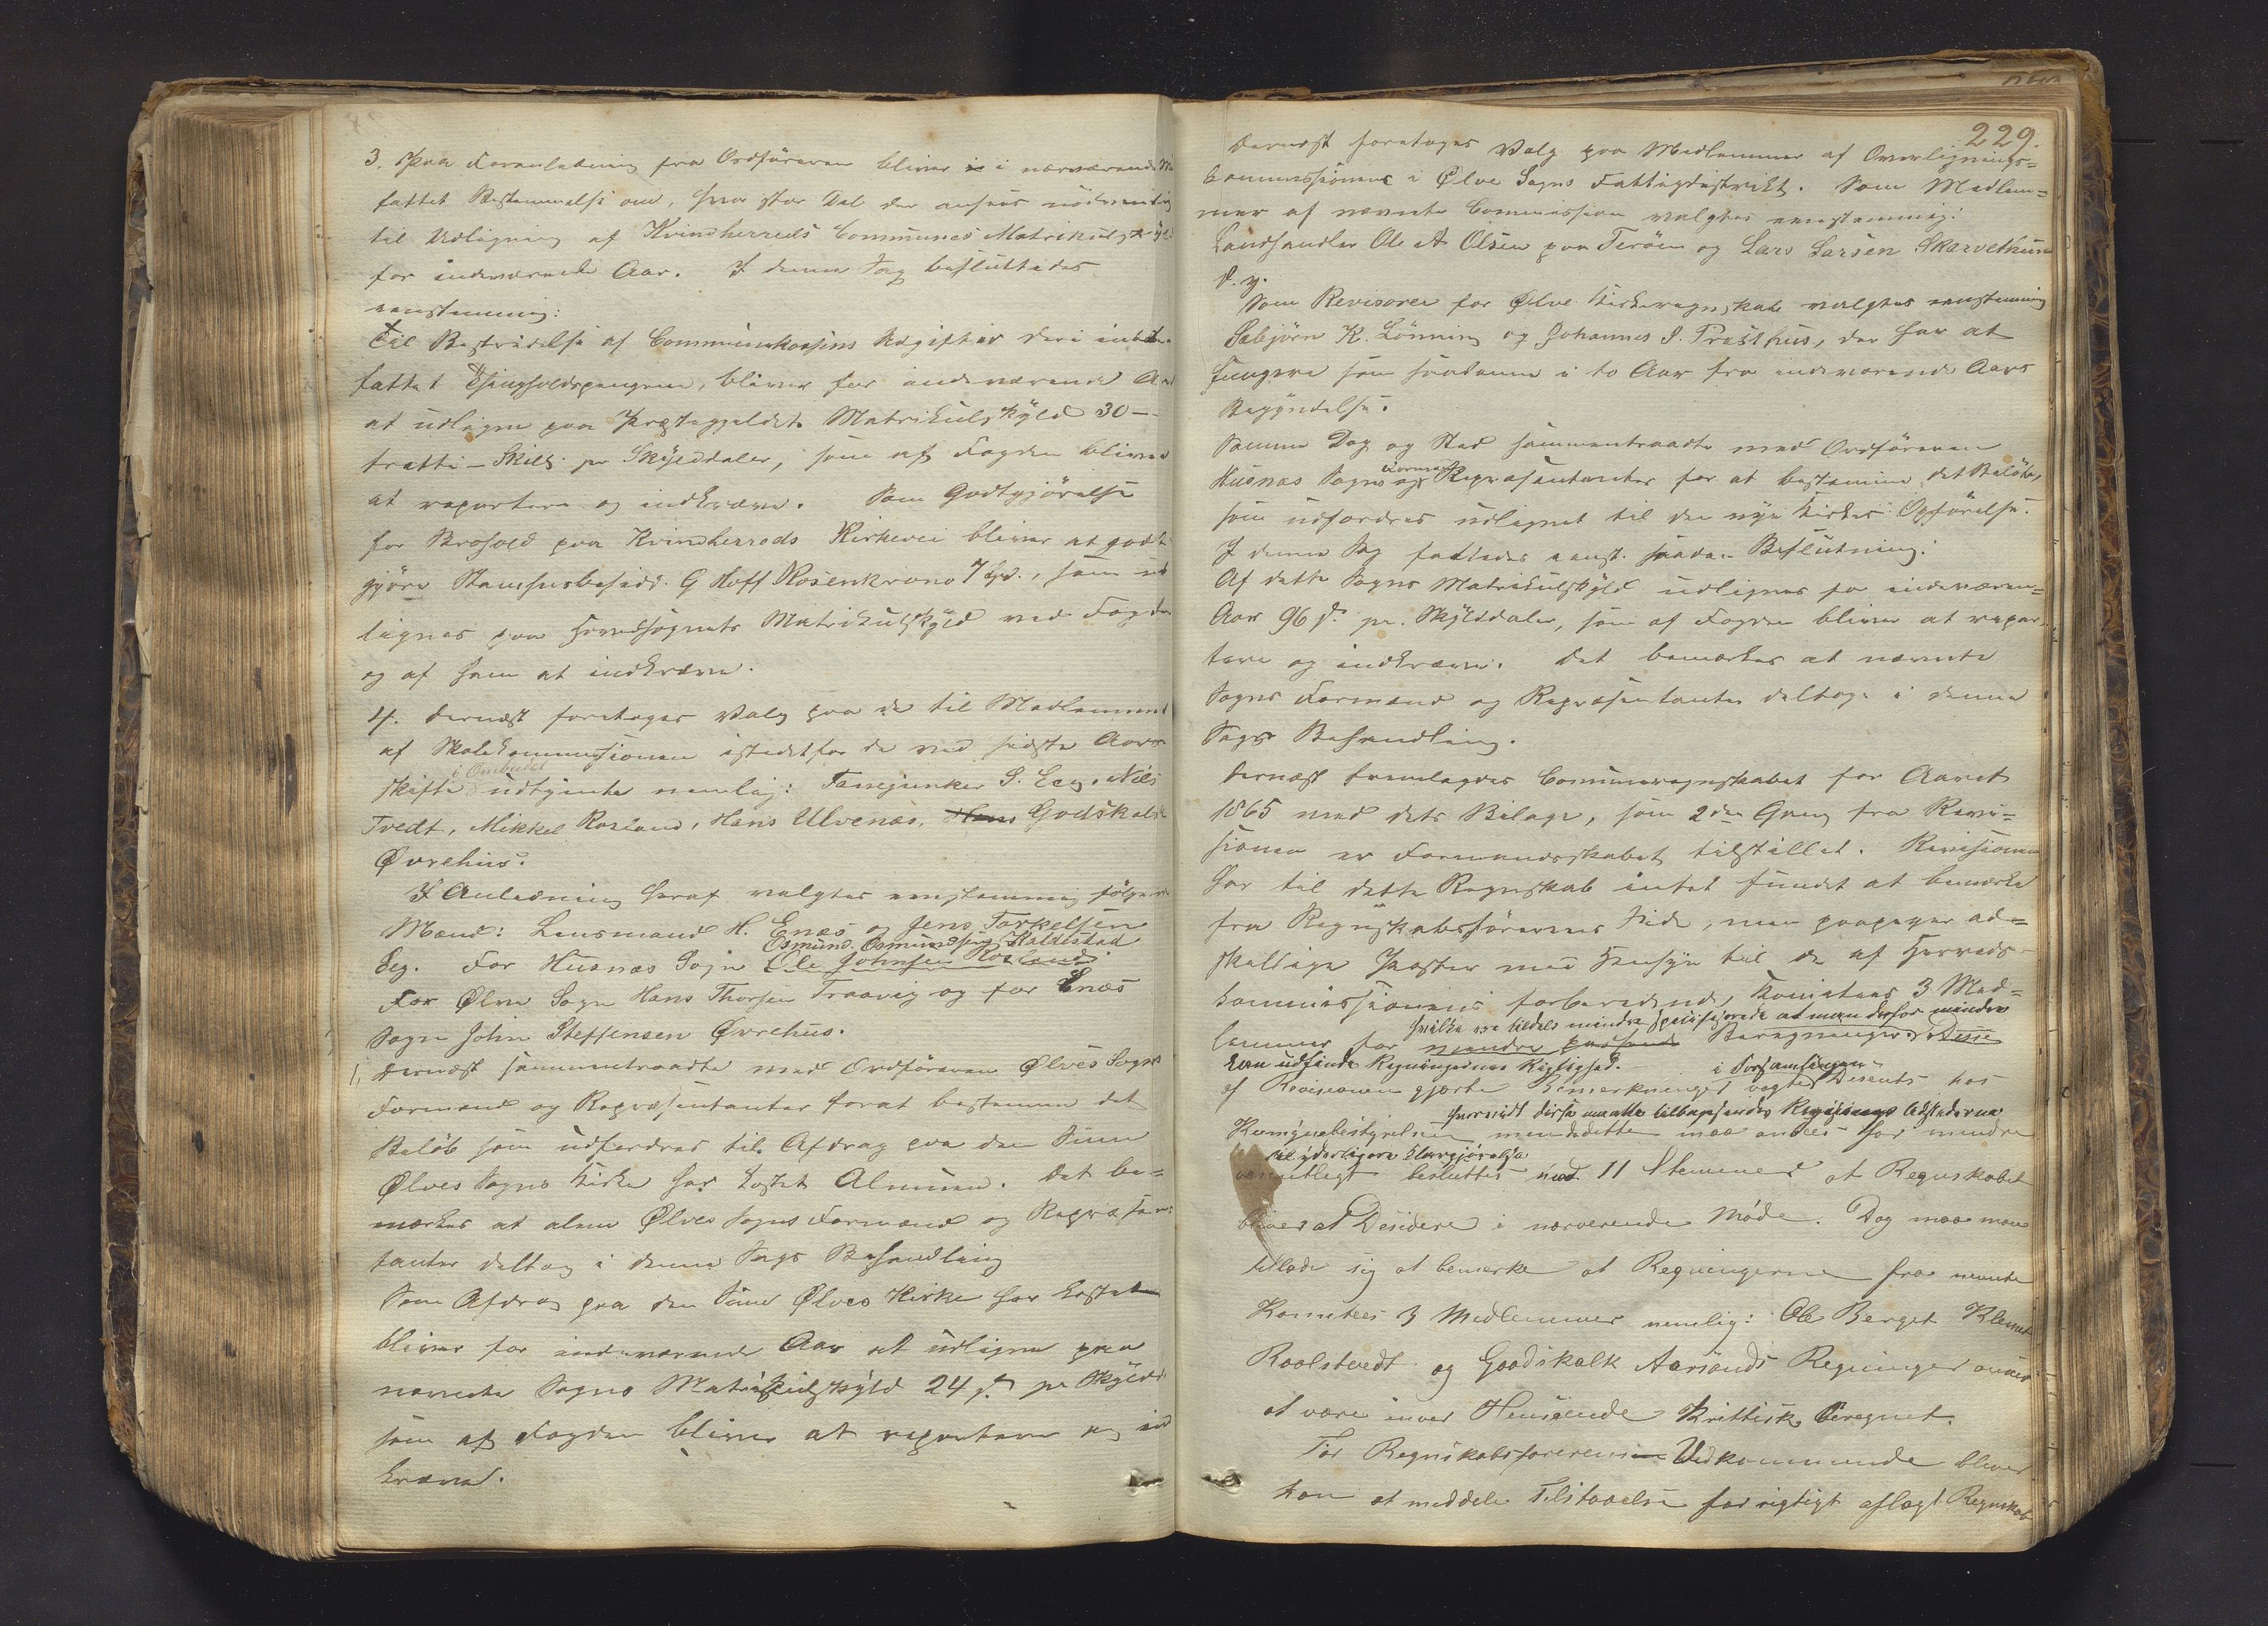 3. Paa Foranledning fra Ordföreren bliver i nærværende
fattet Bestemmelse om, hvor stor Del der ansees nödvendig
til Udligning af Kvindherreds Communes Matrikulskyld
for indeværende Aar. I denne Sag besluttedes
eenstemmig:
Til Bestridelse af Communekassens Udgifter deri indbe-
fattet Thingholdspengene, bliver for indeværende Aar
at udligne paa Præstegjeldets Matrikulskyld 30 –
tretti – Skill. pr Skylddaler, som af Fogden bliver
at repartere og indkræve. Som Godtgjörelse
for Brohold paa Kvindherreds Kirkevei bliver at godt-
gjöre Stamhusbesidd. G Hoff Rosenkrone 7 Spd., som ud
lignes paa Hovedsognets Matrikulskyld ved Fogden
og af ham at indkræve.
4. Dernæst foretoges Valg paa de til Medlemmer
af Skolekommissionen istedetfor de ved sidste Aars
i Ombudet
skifte udtjente nemlig: Tarjei S. Eeg, Nils
Tvedt, Mikkel Rosland, Hans Ulvenæs, Hans Godskalk
Øvrehus.
I Anledning heraf valgtes eenstemmig fölgende
Mænd: Lensmand H. Enæs og Jens Torkelsen
Osmund Osmundsen Kaldestad
Eeg. For Husnæs Sogn Ole Johnsen Rosland
For Ølve Sogn Hans Thorsen Traavig og for Enæs
Sogn John Steffensen Øvrehus.
1, Dernæst sammentraadte med Ordföreren Ølves Sogns
Formænd og Repræsentanter forat bestemme det
Belöb som udfordres til Afdrag paa den Sum
Ølves Sogns Kirke har kostet Almuen. Det be-
mærkes at alene Ølves Sogns Formænd og Repræsen-
tanter deltog i denne Sags Behandling
Som Afdrag paa den Sum Ølves Kirke har kostet
bliver for indeværende Aar at udligne paa
nævnte Sogns Matrikulskyld 24 s. pr Skyldd.
som af Fogden bliver at repartere og ind
kræve.
229.
Dernæst foretoges Valg paa Medlemmer af Overlignings-
kommissionen i Ølve Sogns Fattigdistrikt. Som Medlem-
mer af nævnte Commission valgtes eenstemmig:
Landhandler Ole A Olsen paa Teröen og Lars Larsen Skarvethun
d. y.
Som Revisorer for Ølve Kirkeregnskab valgtes eenstemmig
Sebjörn K. Lönning og Johannes I. Præsthus, der har at
fungere som saadanne i to Aar fra indeværende Aars
Begyndelse.
Samme Dag og Sted sammentraadte med Ordföreren
Formænd
Husnæs Sogns og Repræsentanter for at bestemme det Belöb,
som udfordres udlignet til den nye Kirkes Opförelse.
I denne Sag fattedes eenst. saadan Beslutning:
Af dette Sogns Matrikulskyld udlignes for indeværen-
Aar 96 s. pr. Skylddaler, som af Fogden bliver at repar-
tere og indkræve. Det bemærkes at nævnte
Sogns Formænd og Repræsentanter deltoge i denne
Sags Behandling.
Dernæst fremlagdes Communeregnskabet for Aaret
1865 med dets Bilage, som 2den Gang fra Revi-
sionen er Formandsskabet tilstillet. Revisionen
har til dette Regnskab intet fundet at bemærke
fra Regnskabsförerens Side, men paapeger ad-
skellige Poster med Hensyn til de af Herreds-
kommissionens forberedende Komitees 3 Med-
hvilke ere tildels mindre specificerede at man derfor mindre
lemmer for mindre passende Beregninger. Disse
kan udfinde Regningernes Rigtighed.
i Forsamlingen
af Revisionen gjorte Bemerkninger vagte Desents hos
hvorvidt disse maatte tilbagesendes Revisionens Udstederne
Komynebestyrelsen men dette maa ansees for mindre
til yderligere Klargjörelse
væsentlegt besluttes med 11 Stemmer at Regnskabet
bliver at Desidere i nærverende Möde. Dog maa man
tillade sig at bemerke at Regningerne fra nevnte
Komitees 3 Medlemmer nemlig: Ole Berget Klemet
Roolstvedt og Goodskalk Aarsands Regninger ansees
at være i hver Henseende Krittisk Beregnet.
For Regnskabsforerens Vedkommende bliver
ham at meddele Tilstaaelse for rigtigt aflagt Regnskab